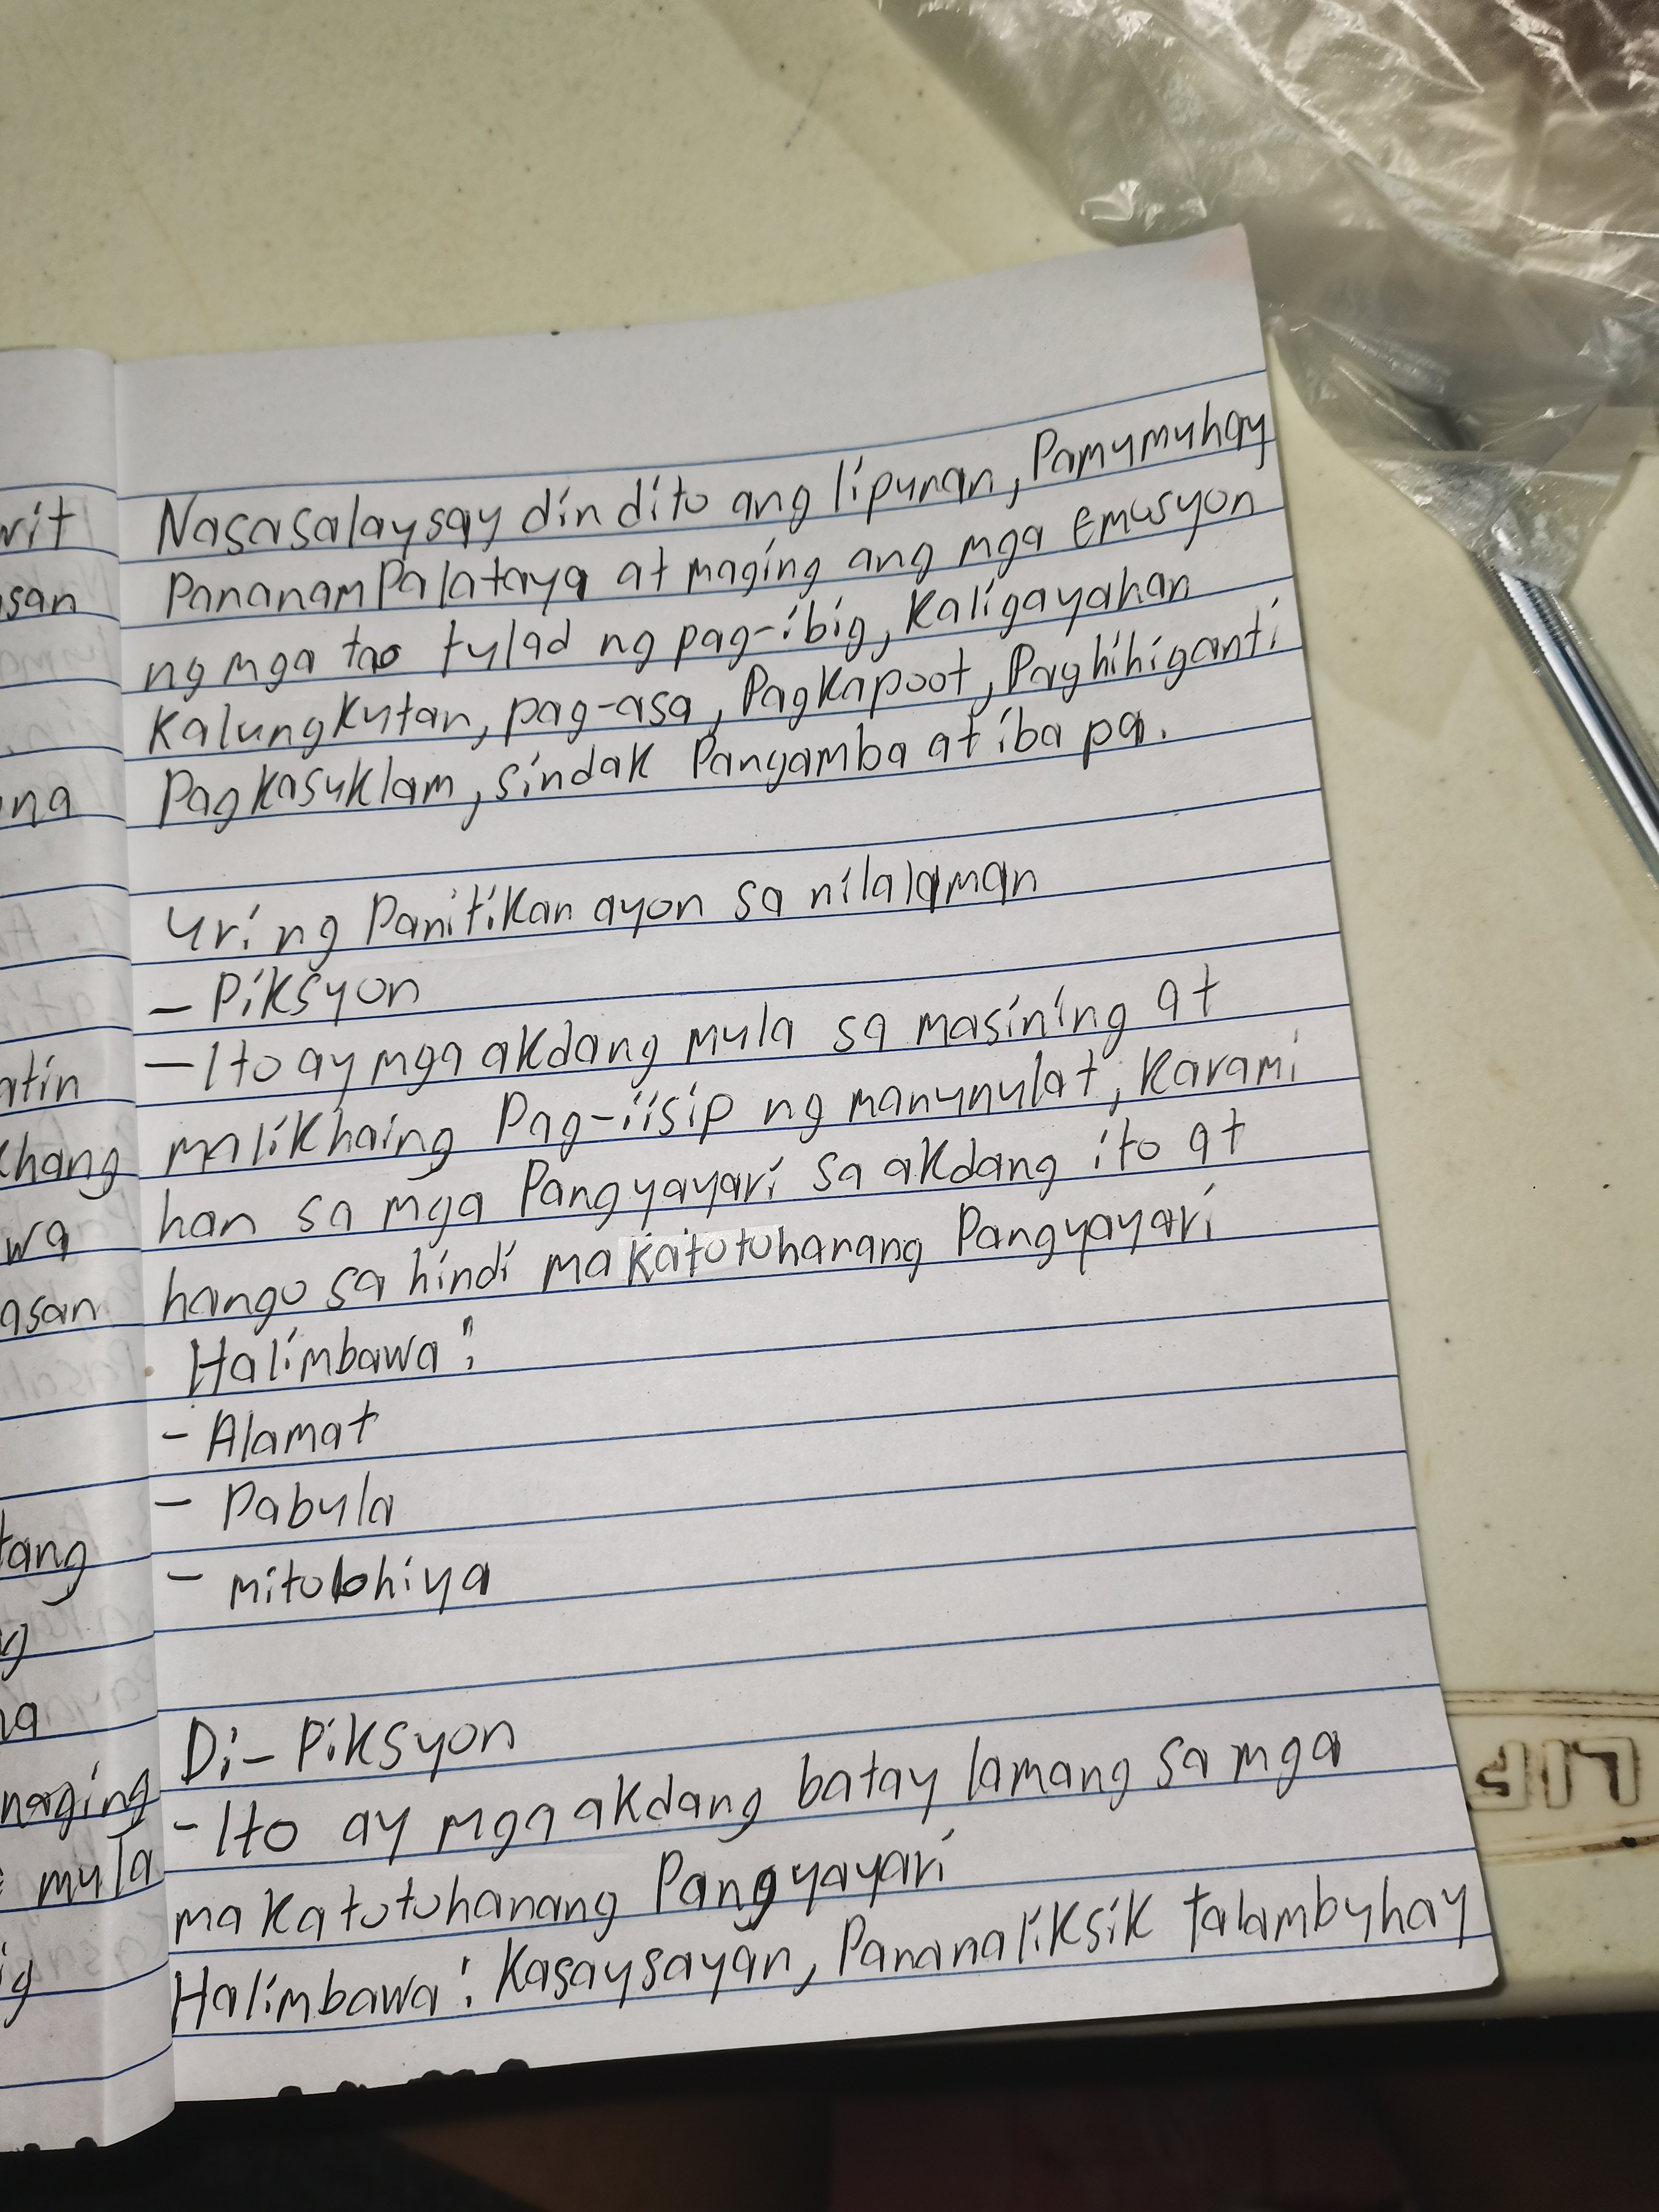 Nasasalaysay din dito ang lipunan, Pamumuhay
Pananampalataya at maging ang mga emosyon
ng mga tao tulad ng pag-ibig, Kaligayahan
Kalungkutan, pag-asa, Pagkapoot, Paghihiganti
Pagkasuklam, sindak Pangamba at iba pa.
Uri ng Panitikan ayon sa nilalaman
- Piksyon
- Ito ay mga akdang mula sa masining at
malikhaing Pag-iisip ng manunulat, Karami
han sa mga Pangyayari sa akdang ito at
hango sa hindi makatotohanang Pangyayari
Halimbawa:
- Alamat
- Pabula
- mitolohiya
Di- Piksyon
- Ito ay mga akdang batay lamang sa mga
makatotohanang Pangyayari
Halimbawa: Kasaysayan, Pananaliksik talambuhay
san
ng
atin
khang
wa
asan
tang
maging
mula
ig